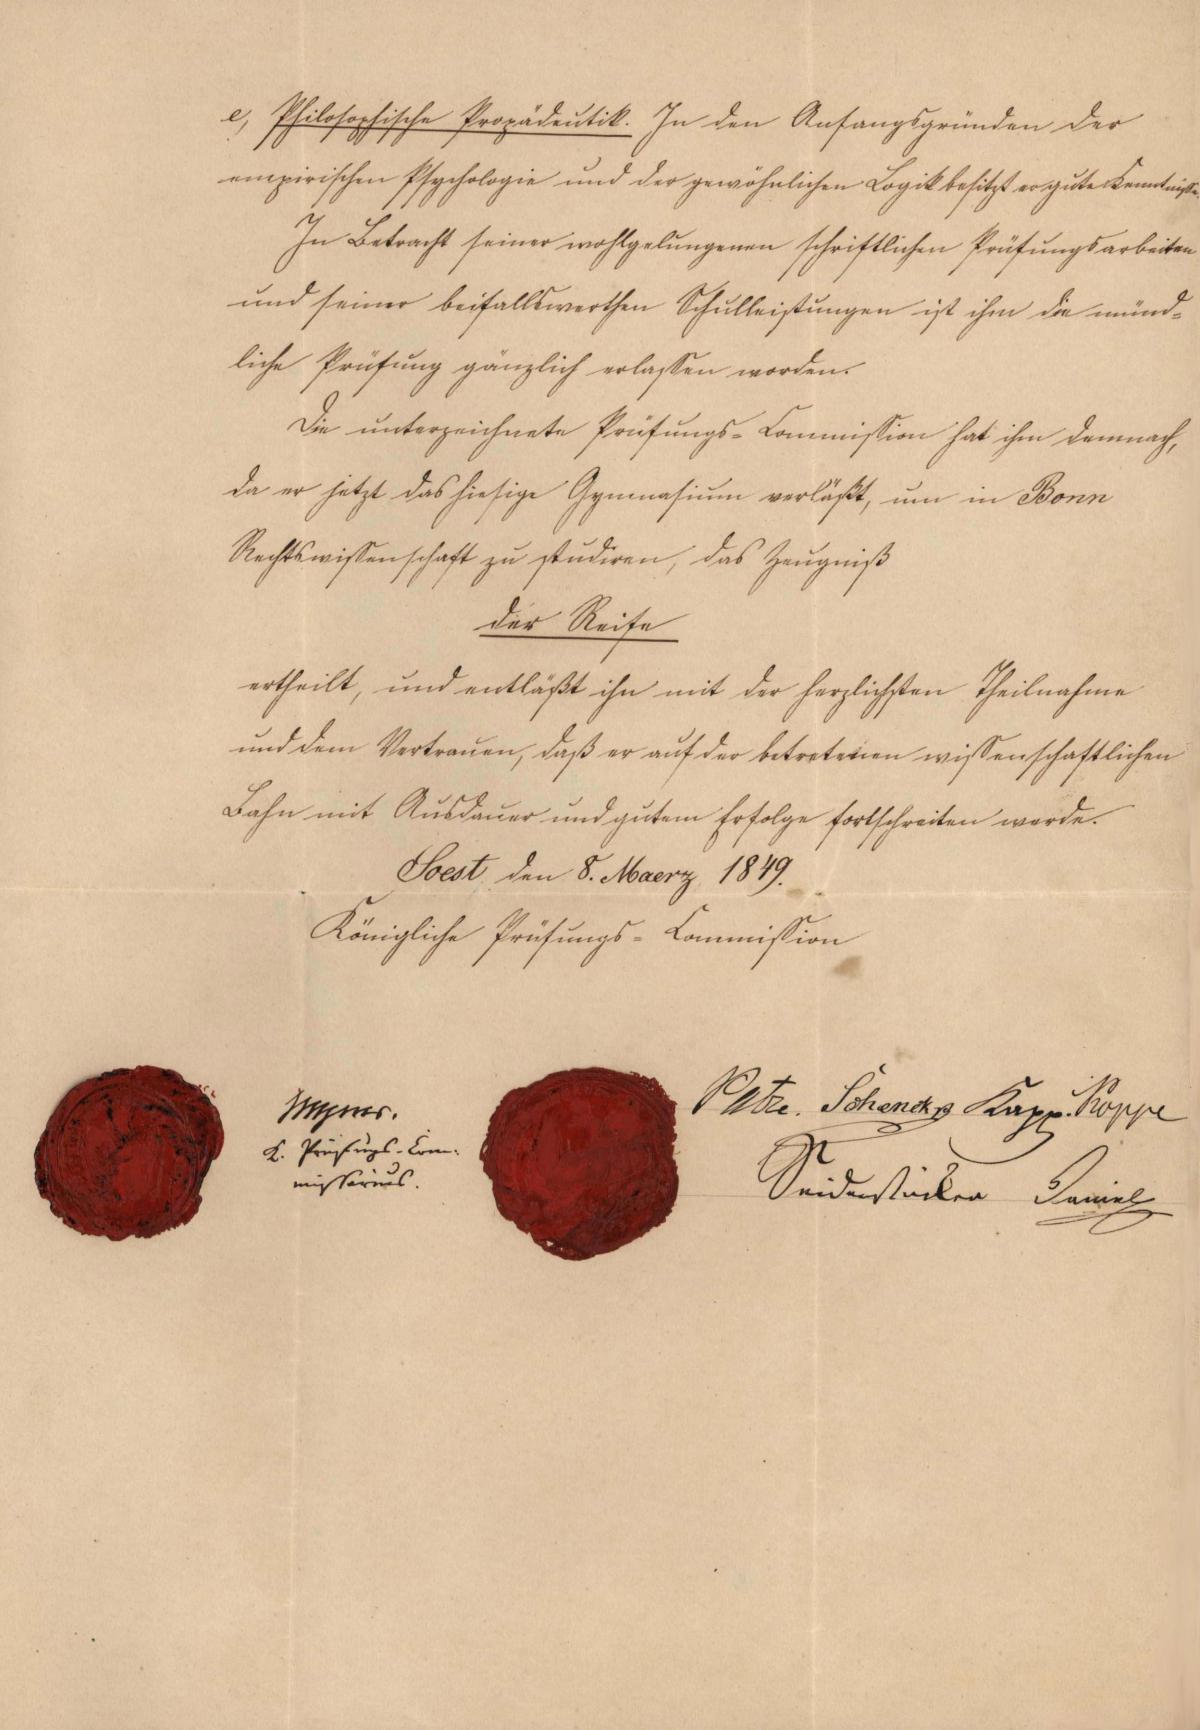 e, Philosophische Propädeutik. In den Anfangsgründen der
empirischen Psychologie und der gewöhnlichen Logik besitzt er gute Kenntnisse.
In Betracht seiner wohlgelungenen schriftlichen Prüfungsarbeiten
und seiner beifallswerthen Schulleistungen ist ihm die münd-
liche Prüfung gänzlich erlassen worden.
Die unterzeichnete Prüfungs-Commission hat ihm demnach,
da er jetzt das hiesige Gymnasium verläßt, um in Bonn
Rechtswissenschaft zu studiren, das Zeugniß
der Reife
ertheilt, und entläßt ihn mit der herzlichsten Theilnahme
und dem Vertrauen, daß er auf der betretenen wissenschaftlichen
Bahn mit Ausdauer und gutem Erfolge fortschreiten werde.
Soest den 8. Maerz 1849.
Königliche Prüfungs-Commission
Patze. Schenck Kapp. Koppe
K. Prüfungs-Com-
missarius.
Seidenstücker